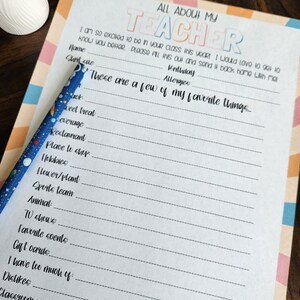 ALL ABOUT MY
TEACHER
I am so excited to be in your class this year! I would love to get to
know you better. Please fill this out and send it back home with me!
Name
Birthday
Shirt size
Allergies
These are a few of my favorite things...
Sweet treat
Beverage
Restaurant
Place to shop
Hobbies
Flower/plant
Sports team
Animal
TV shows
Favorite scents
Gift cards
I have too much of:
Dislikes